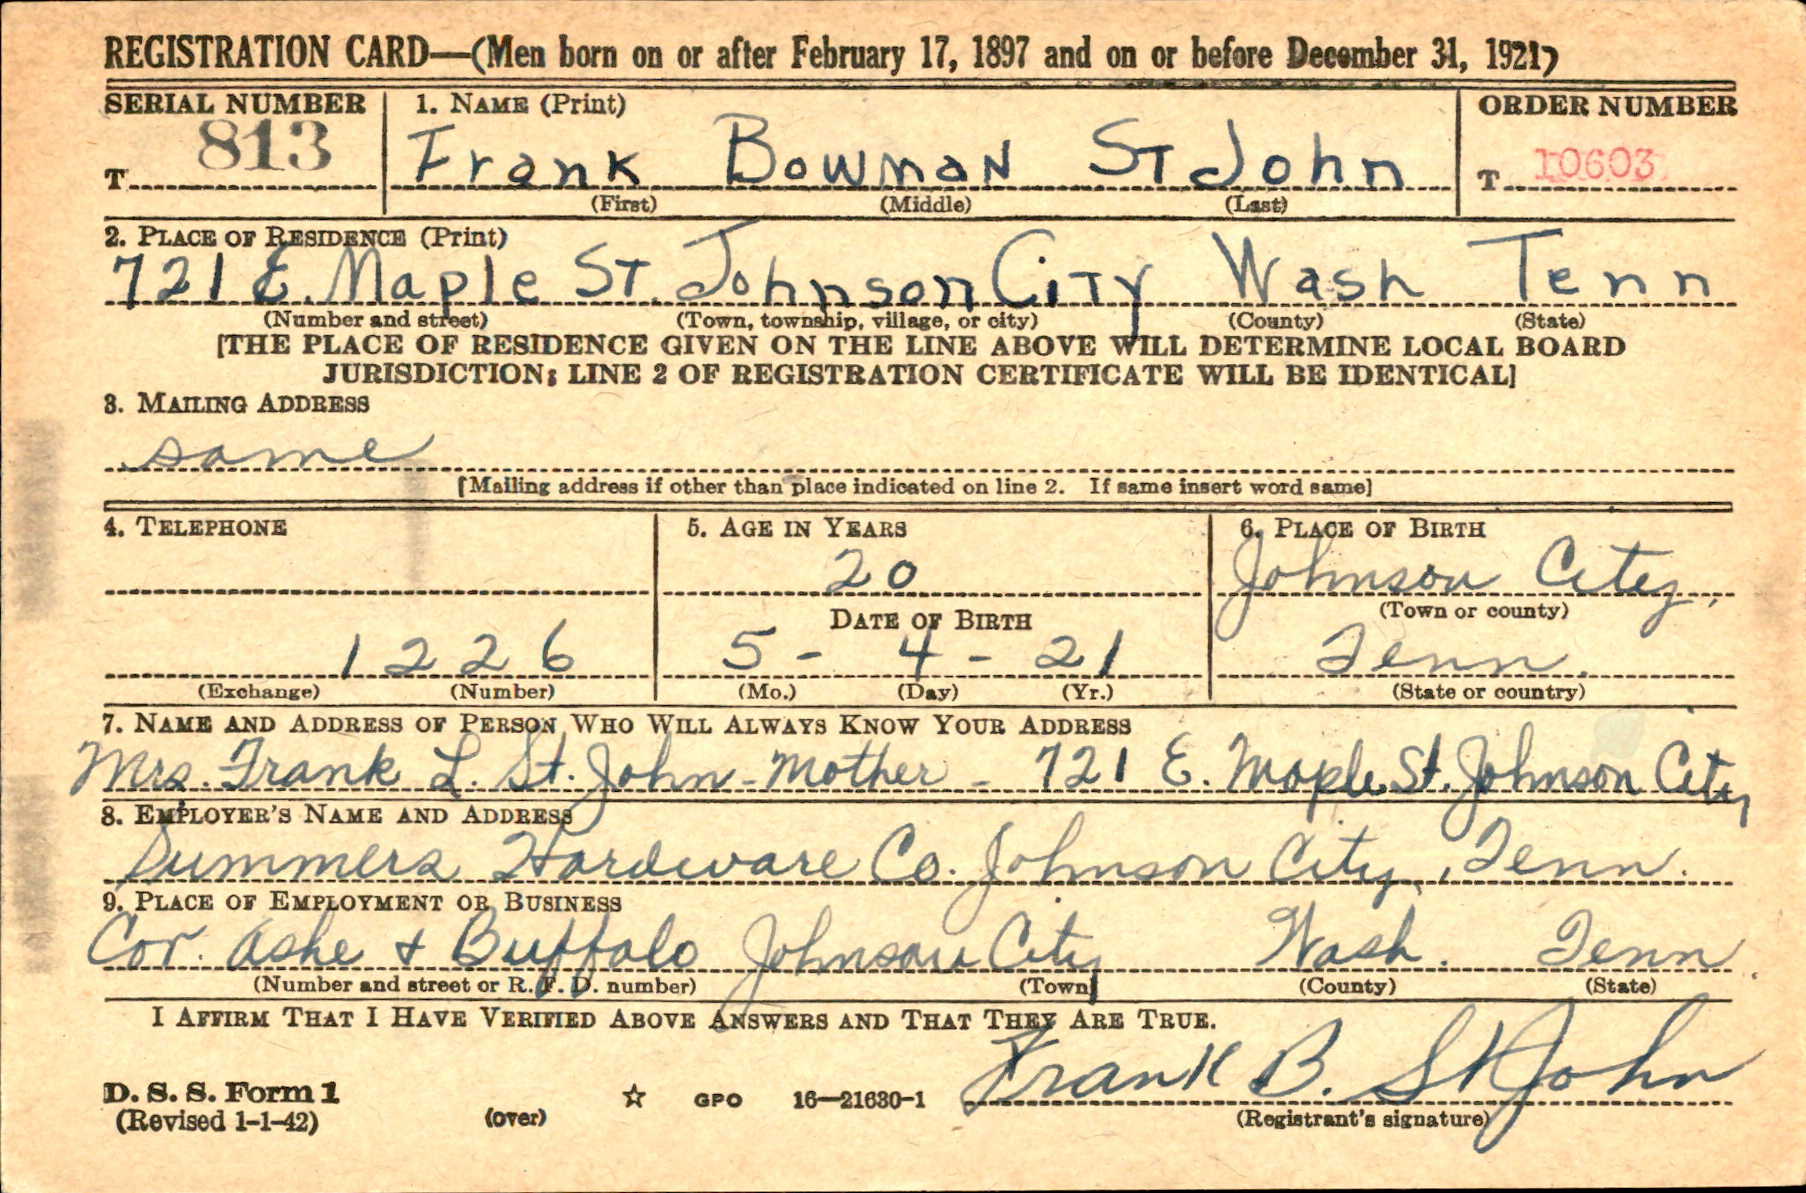 REGISTRATION CARD—(Men born on or after February 17, 1897 and on or before December 31, 1921)
SERIAL NUMBER 1. NAME (Print) ORDER NUMBER
T 813 Frank Bowman St John T 10603
(First) (Middle) (Last)
2. PLACE OF RESIDENCE (Print)
721 E. Maple St. Johnson City Wash Tenn
(Number and street) (Town, township, village, or city) (County) (State)
[THE PLACE OF RESIDENCE GIVEN ON THE LINE ABOVE WILL DETERMINE LOCAL BOARD
JURISDICTION; LINE 2 OF REGISTRATION CERTIFICATE WILL BE IDENTICAL]
3. MAILING ADDRESS
same
[Mailing address if other than place indicated on line 2. If same insert word same]
4. TELEPHONE 5. AGE IN YEARS 6. PLACE OF BIRTH
20 Johnson City,
DATE OF BIRTH (Town or county)
1226 5 - 4 - 21 Tenn.
(Exchange) (Number) (Mo.) (Day) (Yr.) (State or country)
7. NAME AND ADDRESS OF PERSON WHO WILL ALWAYS KNOW YOUR ADDRESS
Mrs. Frank L. St. John - Mother - 721 E. Maple St. Johnson City
8. EMPLOYER'S NAME AND ADDRESS
Summers Hardware Co. Johnson City, Tenn.
9. PLACE OF EMPLOYMENT OR BUSINESS
Cor. Ashe & Buffalo Johnson City Wash. Tenn.
(Number and street or R. F. D. number) (Town) (County) (State)
I AFFIRM THAT I HAVE VERIFIED ABOVE ANSWERS AND THAT THEY ARE TRUE.
Frank B. St John
D. S. S. Form 1
(Revised 1-1-42) (over) ☆ GPO 16—21630-1 (Registrant's signature)